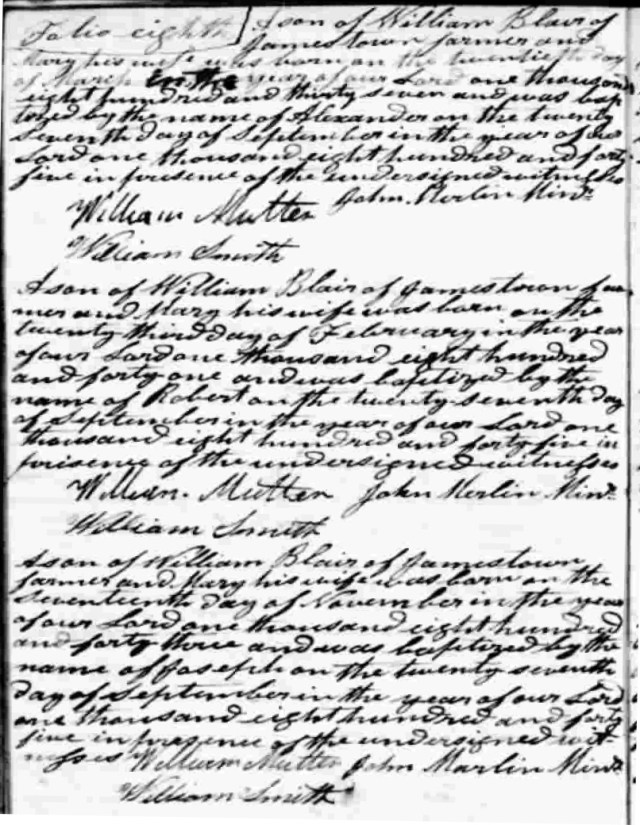 Folio eighth
A son of William Blair of
Jamestown farmer and
Mary his wife was born on the twentieth day
of March in the year of our Lord one thousand
eight hundred and thirty seven and was bap
tized by the name of Alexander on the twenty
seventh day of September in the year of our
Lord one thousand eight hundred and forty
five in presence of the undersigned witnesses
William Mutter John Merlin Minr.
William Smith
A son of William Blair of Jamestown far
mer and Mary his wife was born on the
twenty third day of February in the year
of our Lord one thousand eight hundred
and forty one and was baptized by the
name of Robert on the twenty seventh day
of September in the year of our Lord one
thousand eight hundred and forty five in
prisence of the undersigned witnesses
William. Mutter John Merlin Minr.
William Smith
A son of William Blair of Jamestown
farmer and Mary his wife was born on the
seventeenth day of November in the year
of our Lord one thousand eight hundred
and forty three and was baptized by the
name of Joseph on the twenty seventh
day of September in the year of our Lord
one thousand eight hundred and forty
five in presence of the undersigned wit
nesses William Mutter John Marlin Minr.
William Smith